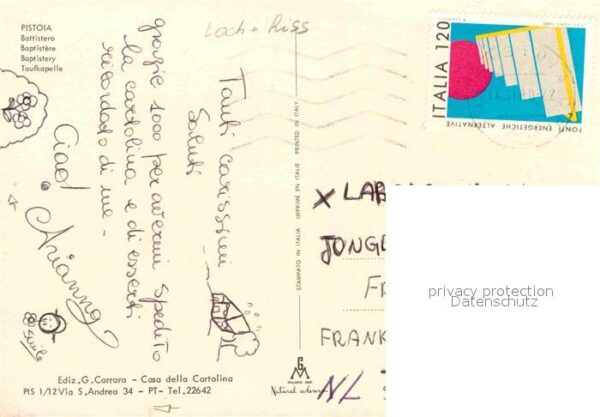 PISTOIA
Battistero
Baptistère
Baptistery
Taufkapelle
Loch + Riss
grazie 1000 per avermi spedito
la cartolina e di esserti
ricordato di me -
Tanti carissimi
Saluti
Ciao!
Arianna
smile
ITALIA 120
FONTI ENERGETICHE ALTERNATIVE
STAMPATO IN ITALIA IMPRIMÉ EN ITALIE PRINTED IN ITALY
X LAB
JONGE
FR
FRANK
NL
privacy protection
Datenschutz
Ediz. G. Carrara - Casa della Cartolina
PIS 1/12 Via S. Andrea 34 - PT - Tel. 22642